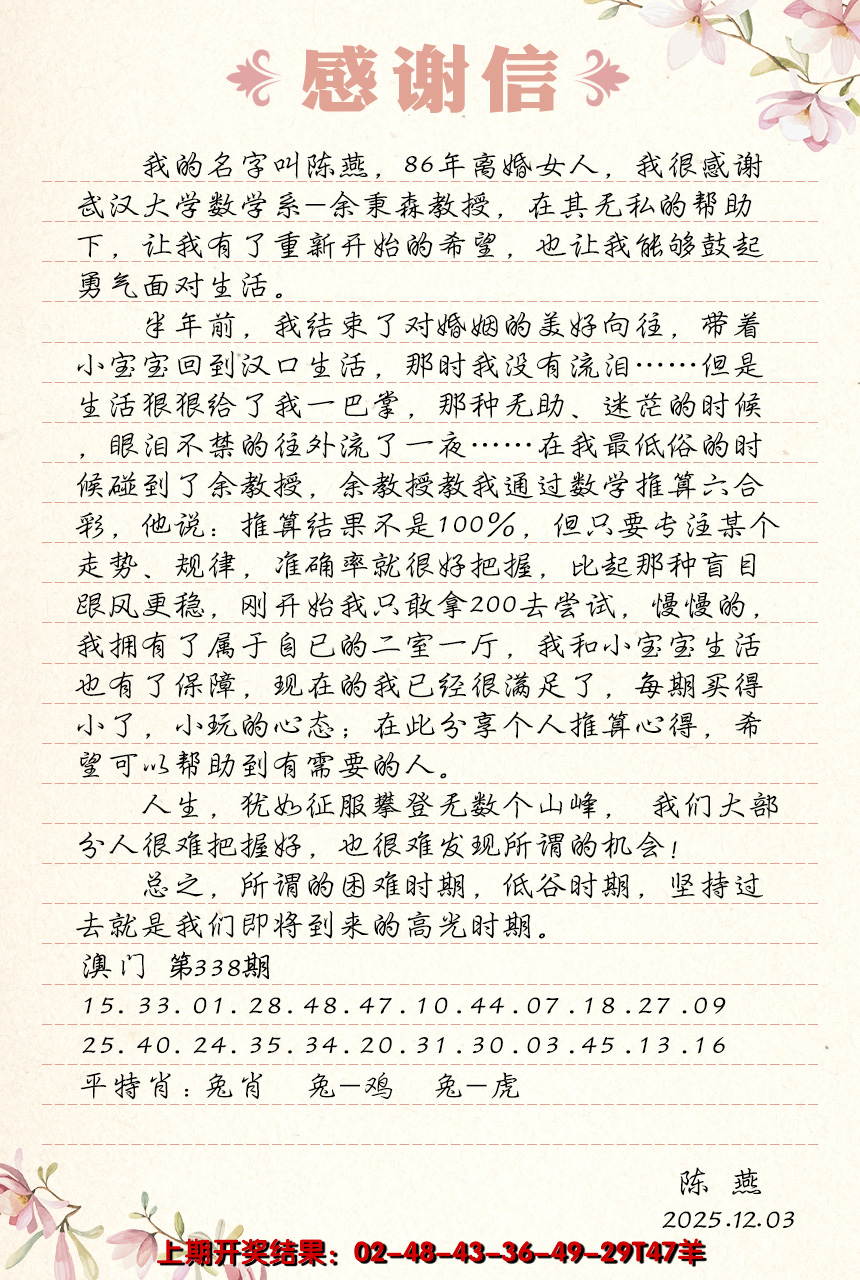 感谢信
我的名字叫陈燕，86年离婚女人，我很感谢
武汉大学数学系—余秉森教授，在其无私的帮助
下，让我有了重新开始的希望，也让我能够鼓起
勇气面对生活。
半年前，我结束了对婚姻的美好向往，带着
小宝宝回到汉口生活，那时我没有流泪……但是
生活狠狠给了我一巴掌，那种无助、迷茫的时候
，眼泪不禁的往外流了一夜……在我最低俗的时
候碰到了余教授，余教授教我通过数学推算六合
彩，他说：推算结果不是100%，但只要专注某个
走势、规律，准确率就很好把握，比起那种盲目
跟风更稳，刚开始我只敢拿200去尝试，慢慢的，
我拥有了属于自已的二室一厅，我和小宝宝生活
也有了保障，现在的我已经很满足了，每期买得
小了，小玩的心态；在此分享个人推算心得，希
望可以帮助到有需要的人。
人生，犹如征服攀登无数个山峰， 我们大部
分人很难把握好，也很难发现所谓的机会！
总之，所谓的困难时期，低谷时期，坚持过
去就是我们即将到来的高光时期。
澳门 第338期
15.33.01.28.48.47.10.44.07.18.27.09
25.40.24.35.34.20.31.30.03.45.13.16
平特肖：兔肖 兔—鸡 兔—虎
陈 燕
2025.12.03
上期开奖结果：02-48-43-36-49-29T47羊